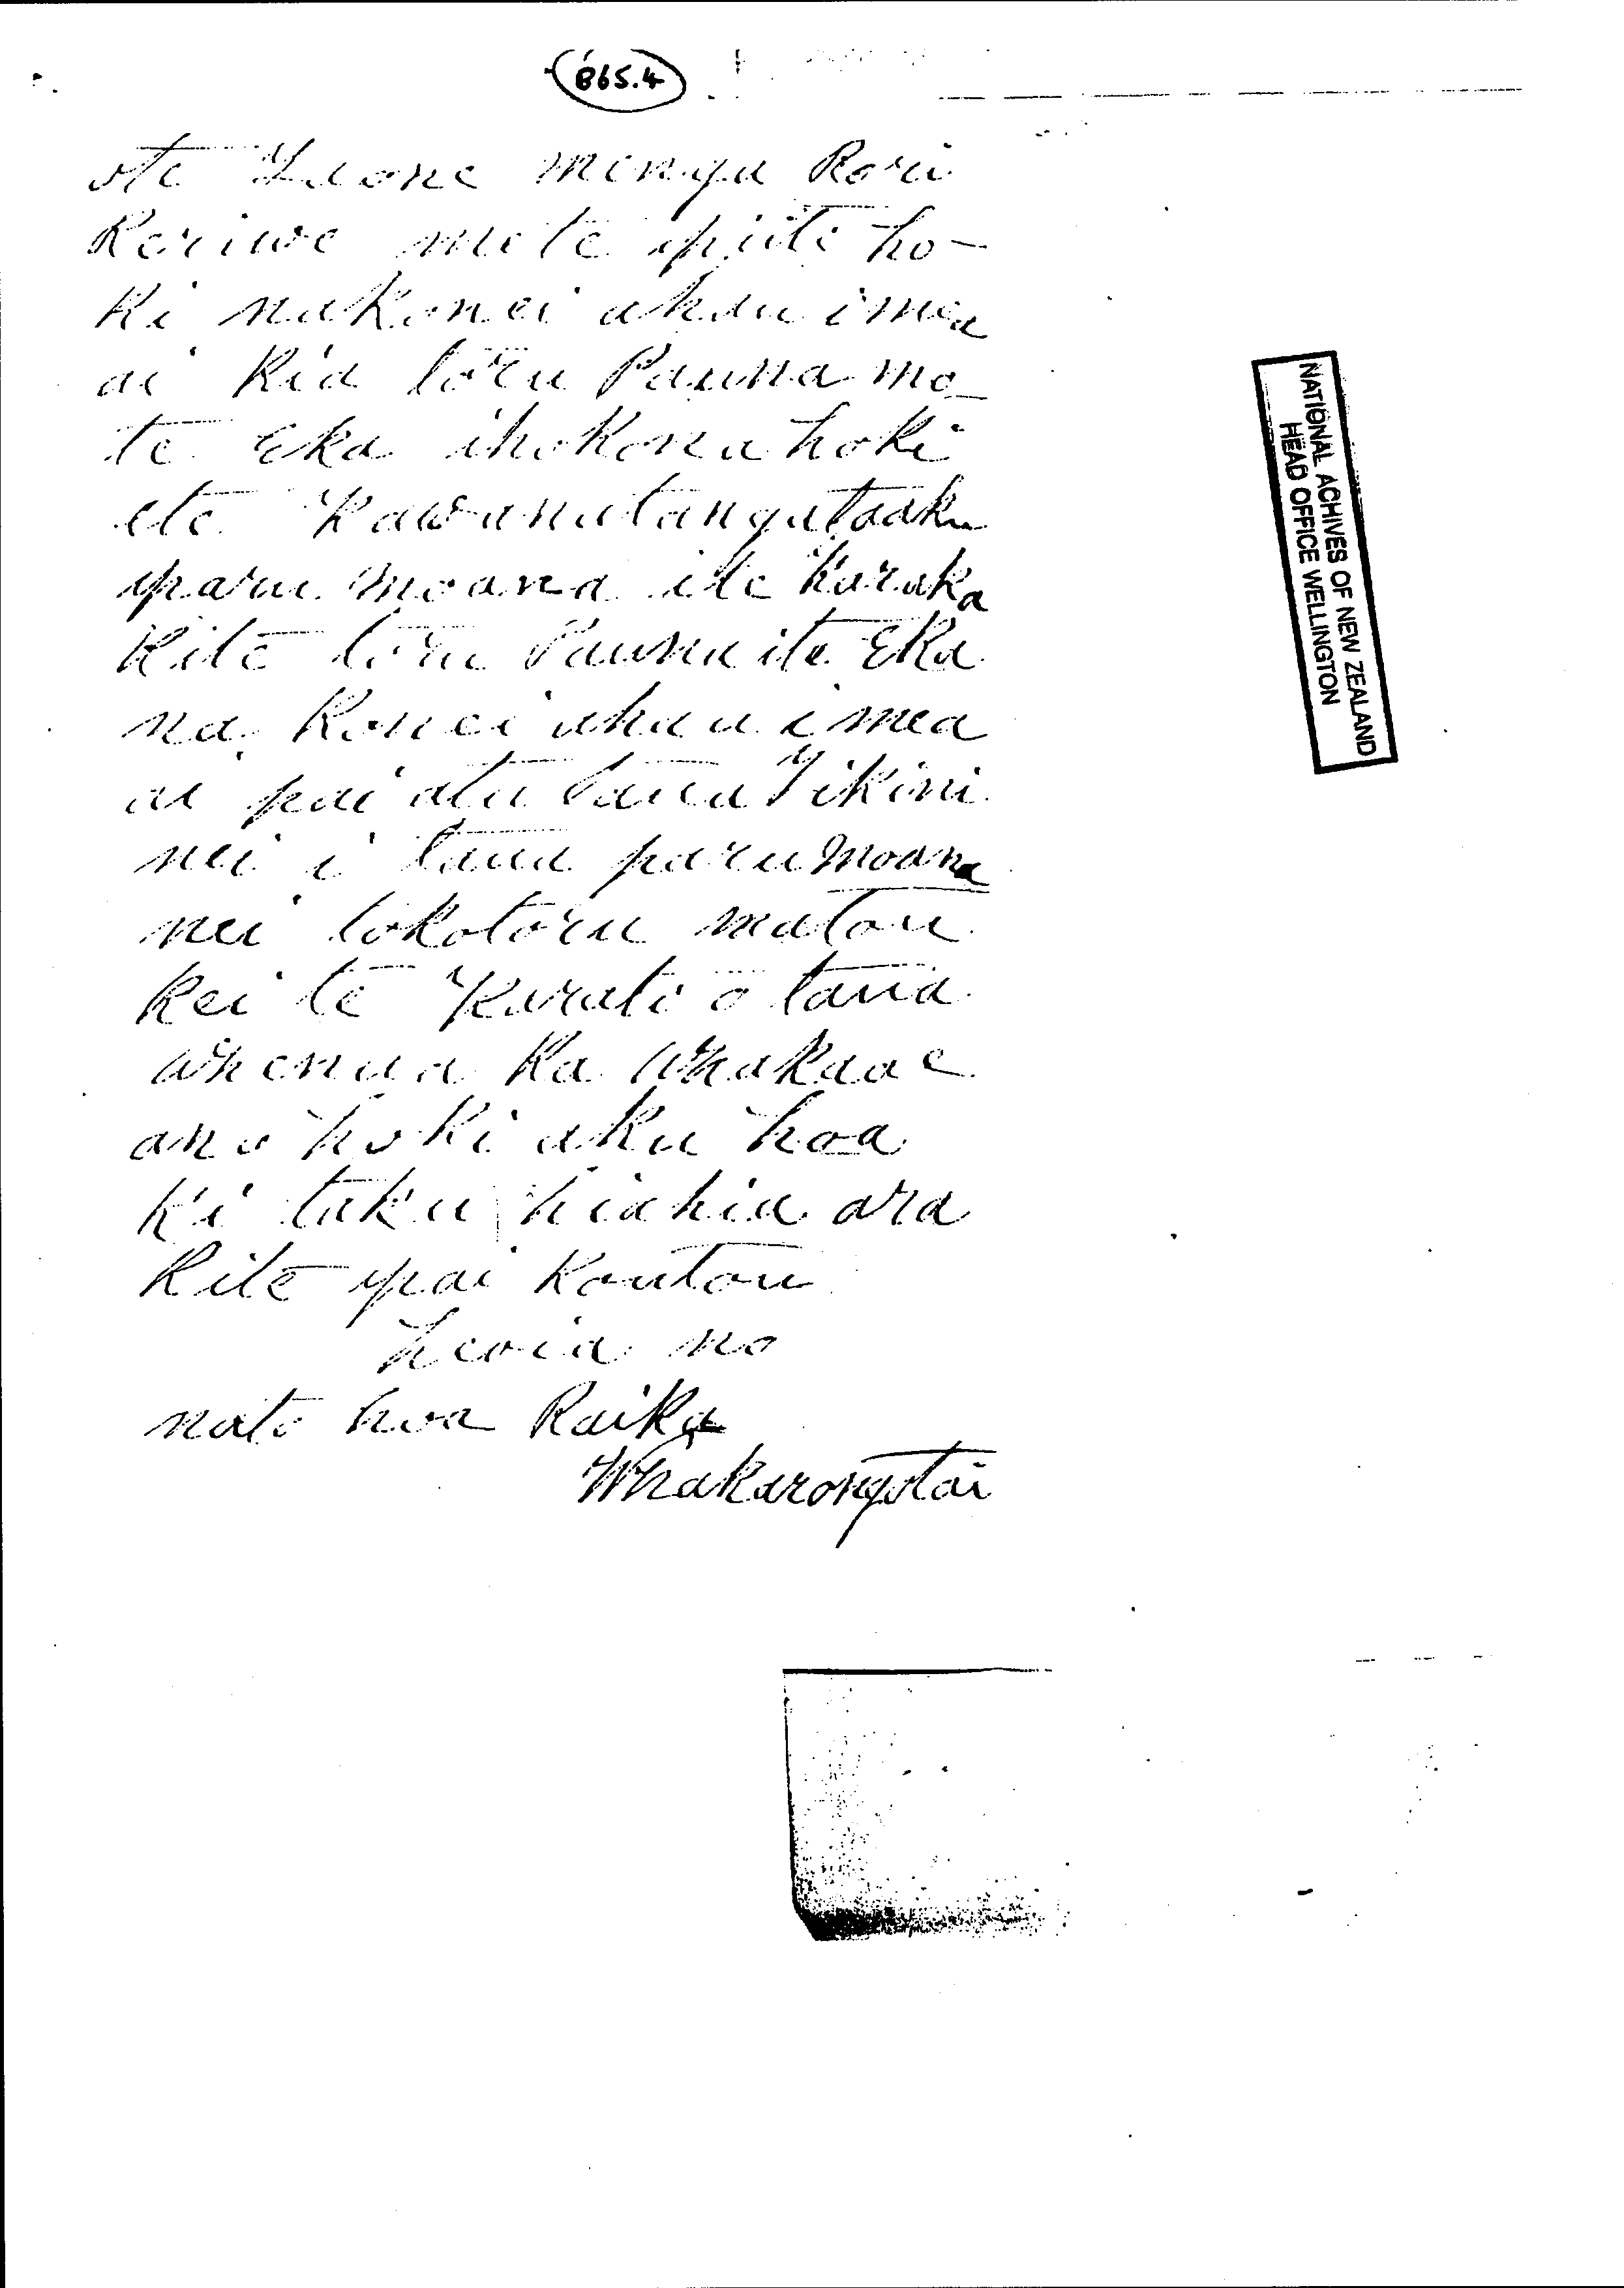 865.4
ote Taone menga Rori
Reriwe mete piiti ho-
ki nakonei ahau imea
ai kia toru Pauna mo
te Eka ihokona hoki
ete Kawanatanga taaku
paru moana ite karaka
kite toru Pauna ite Eka
na konei ahau i mea
ai pai atu taua Tikini
nei i taua paru moana
nei tokotoru matou
kei te Karati o taua
whenua ka whakaae
ano hoki aku hoa
ki taku hiahia ara
kite pai koutou
heoia no
nato hoa Raika
Whakarongotai
NATIONAL ACHIVES OF NEW ZEALAND
HEAD OFFICE WELLINGTON